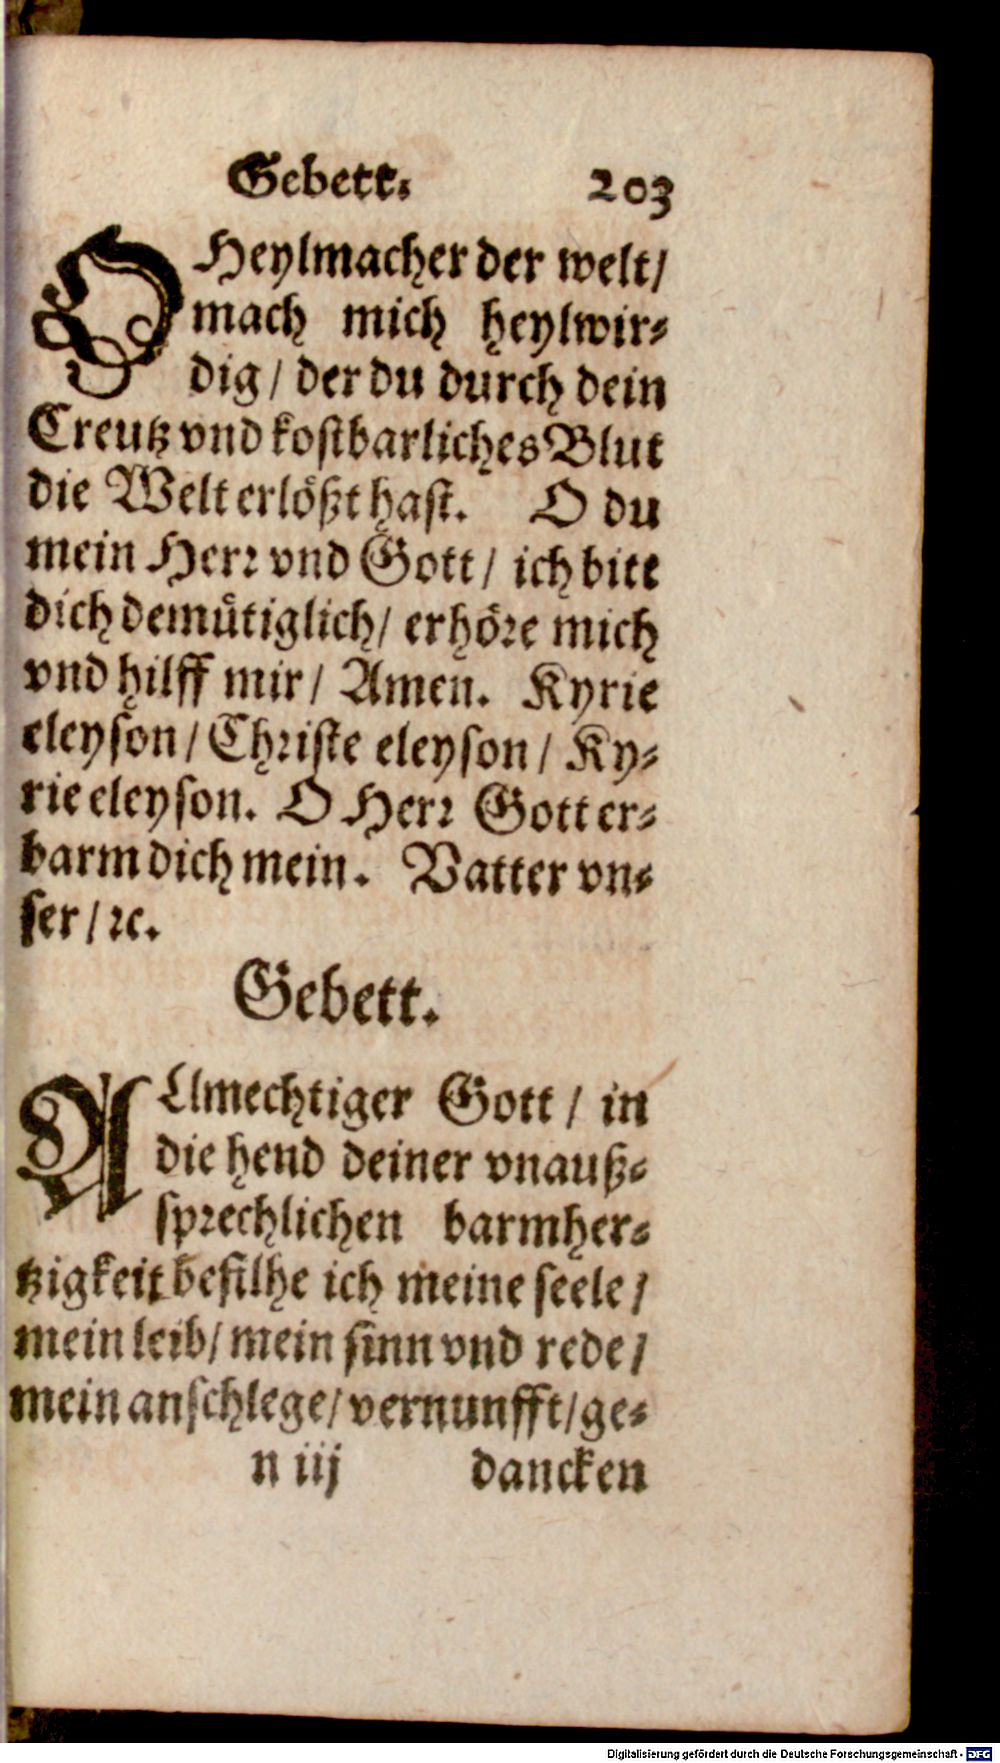 Gebett. 203
O Heylmacher der welt/
mach mich heylwir-
dig/ der du durch dein
Creutz vnd kostbarliches Blut
die Welt erlößt hast. O du
mein Herr vnd Gott/ ich bitt
dich demütiglich/ erhöre mich
vnd hilff mir/ Amen. Kyrie
eleyson/ Christe eleyson/ Ky-
rie eleyson. O Herr Gott er-
barm dich mein. Vatter vn-
ser/ ꝛc.
Gebett.
ALlmechtiger Gott/ in
die hend deiner vnauß-
sprechlichen barmher-
tzigkeit befilhe ich meine seele/
mein leib/ mein sinn vnd rede/
mein anschlege/ vernunfft/ ge-
n iij dancken
Digitalisierung gefördert durch die Deutsche Forschungsgemeinschaft - DFG